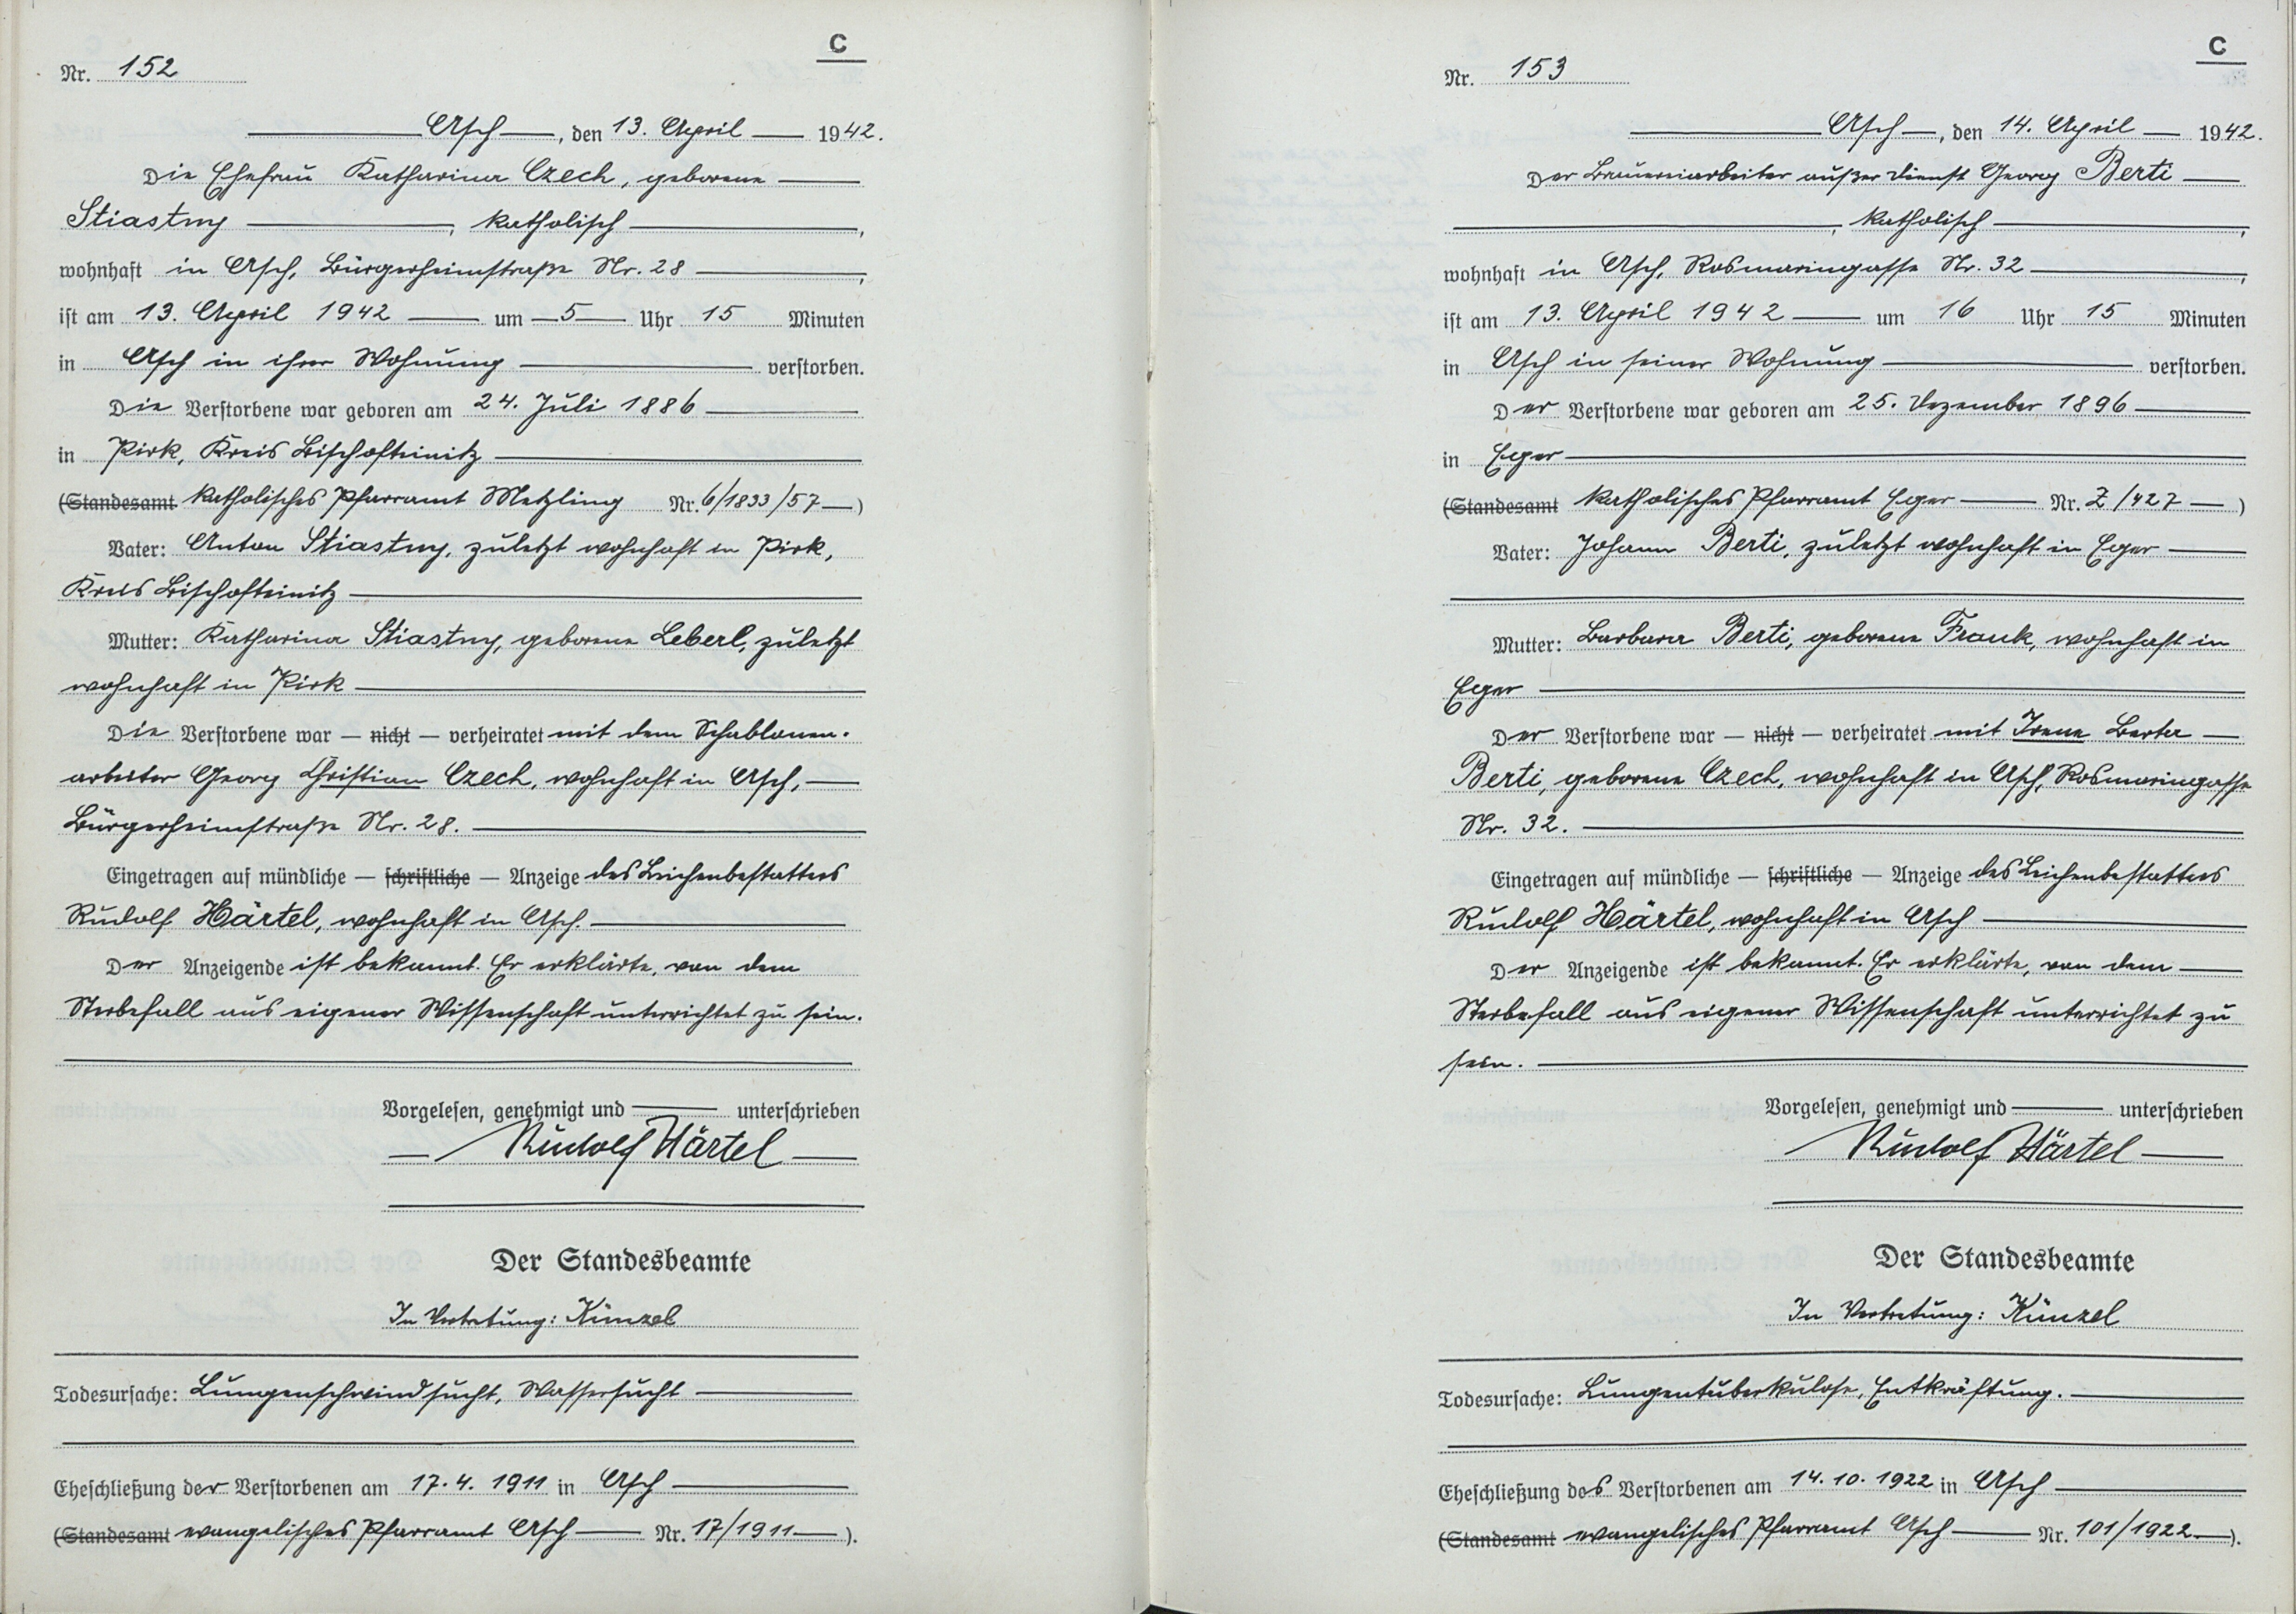 C
Nr. 152
Asch, den 13. April 1942.
Die Ehefrau Katharina Czech, geborene
Stiastny, katholisch,
wohnhaft in Asch, Bürgerheimstraße Nr. 28,
ist am 13. April 1942 um 5 Uhr 15 Minuten
in Asch in ihrer Wohnung verstorben.
Die Verstorbene war geboren am 24. Juli 1886
in Pirk, Kreis Bischofteinitz
(Standesamt katholisches Pfarramt Metzling Nr. 6/1833/57)
Vater: Anton Stiastny, zuletzt wohnhaft in Pirk,
Kreis Bischofteinitz
Mutter: Katharina Stiastny, geborene Leberl, zuletzt
wohnhaft in Pirk
Die Verstorbene war — nicht — verheiratet mit dem Schablonen-
arbeiter Georg Christian Czech, wohnhaft in Asch,
Bürgerheimstraße Nr. 28.
Eingetragen auf mündliche — schriftliche — Anzeige des Leichenbestatters
Rudolf Härtel, wohnhaft in Asch.
Der Anzeigende ist bekannt. Er erklärte, von dem
Sterbefall aus eigener Wissenschaft unterrichtet zu sein.
Vorgelesen, genehmigt und unterschrieben
Rudolf Härtel
Der Standesbeamte
In Vertretung: Künzel
Todesursache: Lungenschwindsucht, Wassersucht
Eheschließung der Verstorbenen am 17.4. 1911 in Asch
(Standesamt evangelisches Pfarramt Asch Nr. 17/1911).
C
Nr. 153
Asch, den 14. April 1942.
Der Brauereiarbeiter außer Dienst Georg Berti
, katholisch,
wohnhaft in Asch, Rosmaringasse Nr. 32,
ist am 13. April 1942 um 16 Uhr 15 Minuten
in Asch in seiner Wohnung verstorben.
Der Verstorbene war geboren am 25. Dezember 1896
in Eger
(Standesamt katholisches Pfarramt Eger Nr. Z/427)
Vater: Johann Berti, zuletzt wohnhaft in Eger
Mutter: Barbara Berti, geborene Frank, wohnhaft in
Eger
Der Verstorbene war — nicht — verheiratet mit Irene Berta
Berti, geborene Czech, wohnhaft in Asch, Rosmaringasse
Nr. 32.
Eingetragen auf mündliche — schriftliche — Anzeige des Leichenbestatters
Rudolf Härtel, wohnhaft in Asch
Der Anzeigende ist bekannt. Er erklärte, von dem
Sterbefall aus eigener Wissenschaft unterrichtet zu
sein.
Vorgelesen, genehmigt und unterschrieben
Rudolf Härtel
Der Standesbeamte
In Vertretung: Künzel
Todesursache: Lungentuberkulose, Entkräftung.
Eheschließung des Verstorbenen am 14.10.1922 in Asch
(Standesamt evangelisches Pfarramt Asch Nr. 101/1922).